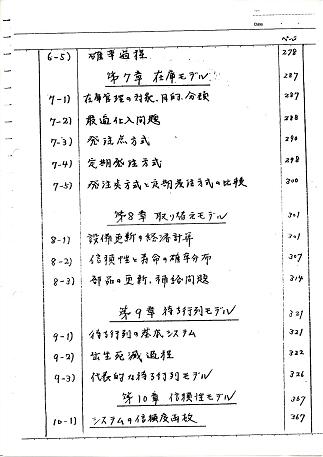 Date
ページ
6-5) 確率過程 278
第7章 在庫モデル 287
7-1) 在庫管理の対象、目的、分類 287
7-2) 最適仕入問題 288
7-3) 発注点方式 290
7-4) 定期発注方式 298
7-5) 発注点方式と定期発注方式の比較 300
第8章 取り替えモデル 301
8-1) 設備更新の経済計算 301
8-2) 信頼性と寿命の確率分布 307
8-3) 部品の更新、補給問題 314
第9章 待ち行列モデル 321
9-1) 待ち行列の基本システム 321
9-2) 出生死滅過程 322
9-3) 代表的な待ち行列モデル 326
第10章 信頼性モデル 367
10-1) システムの信頼度函数 367